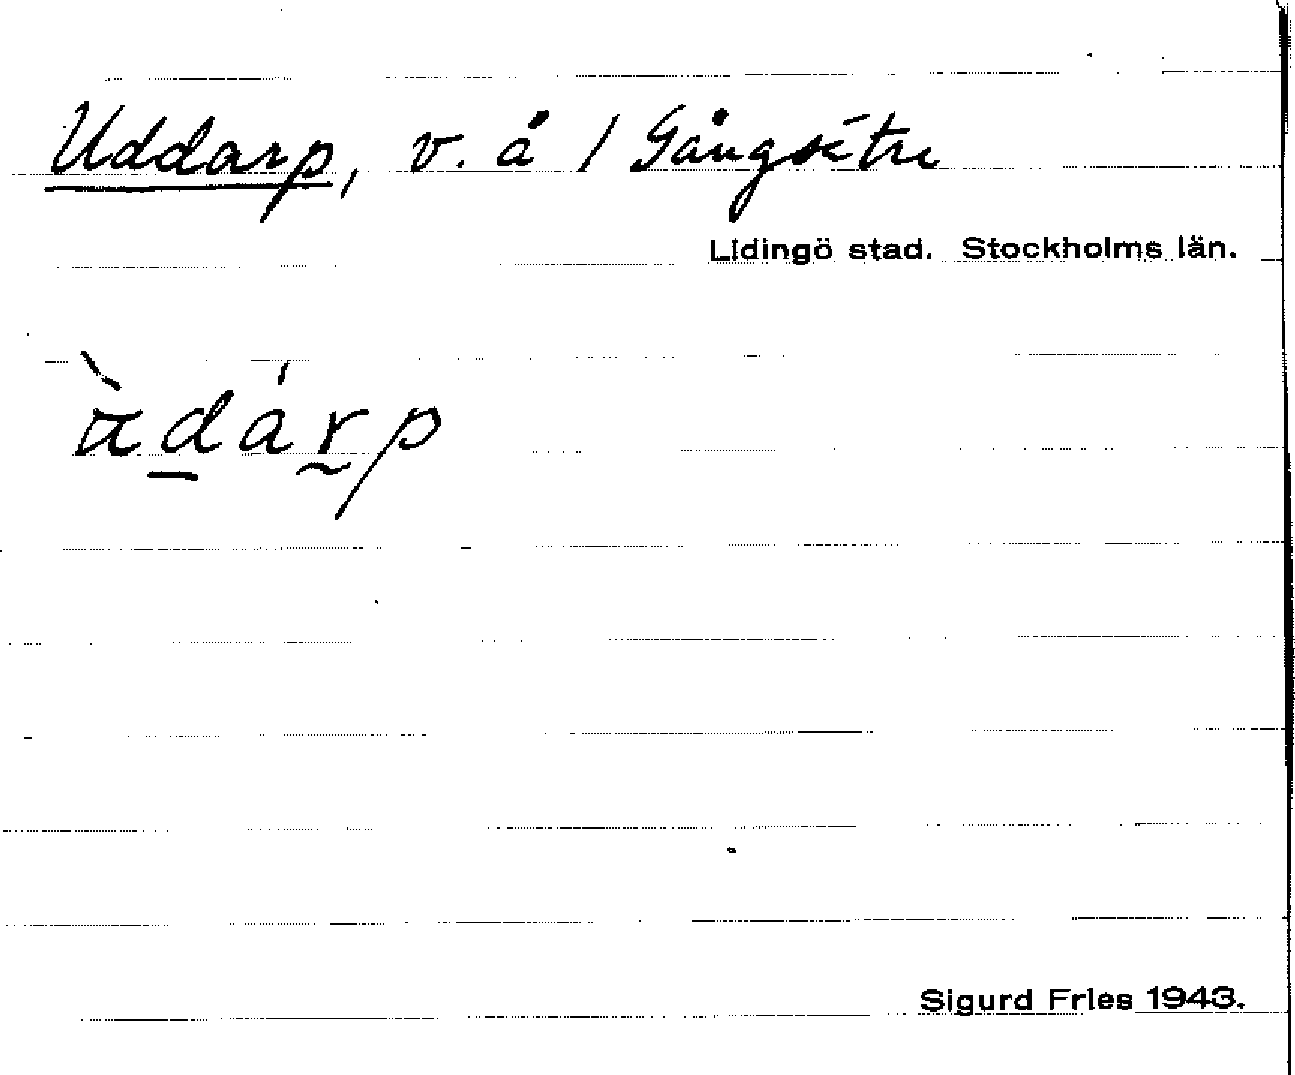 Uddarp, v. å / Gångsätra
Lidingö stad. Stockholms län.
ùdárp
Sigurd Fries 1943.